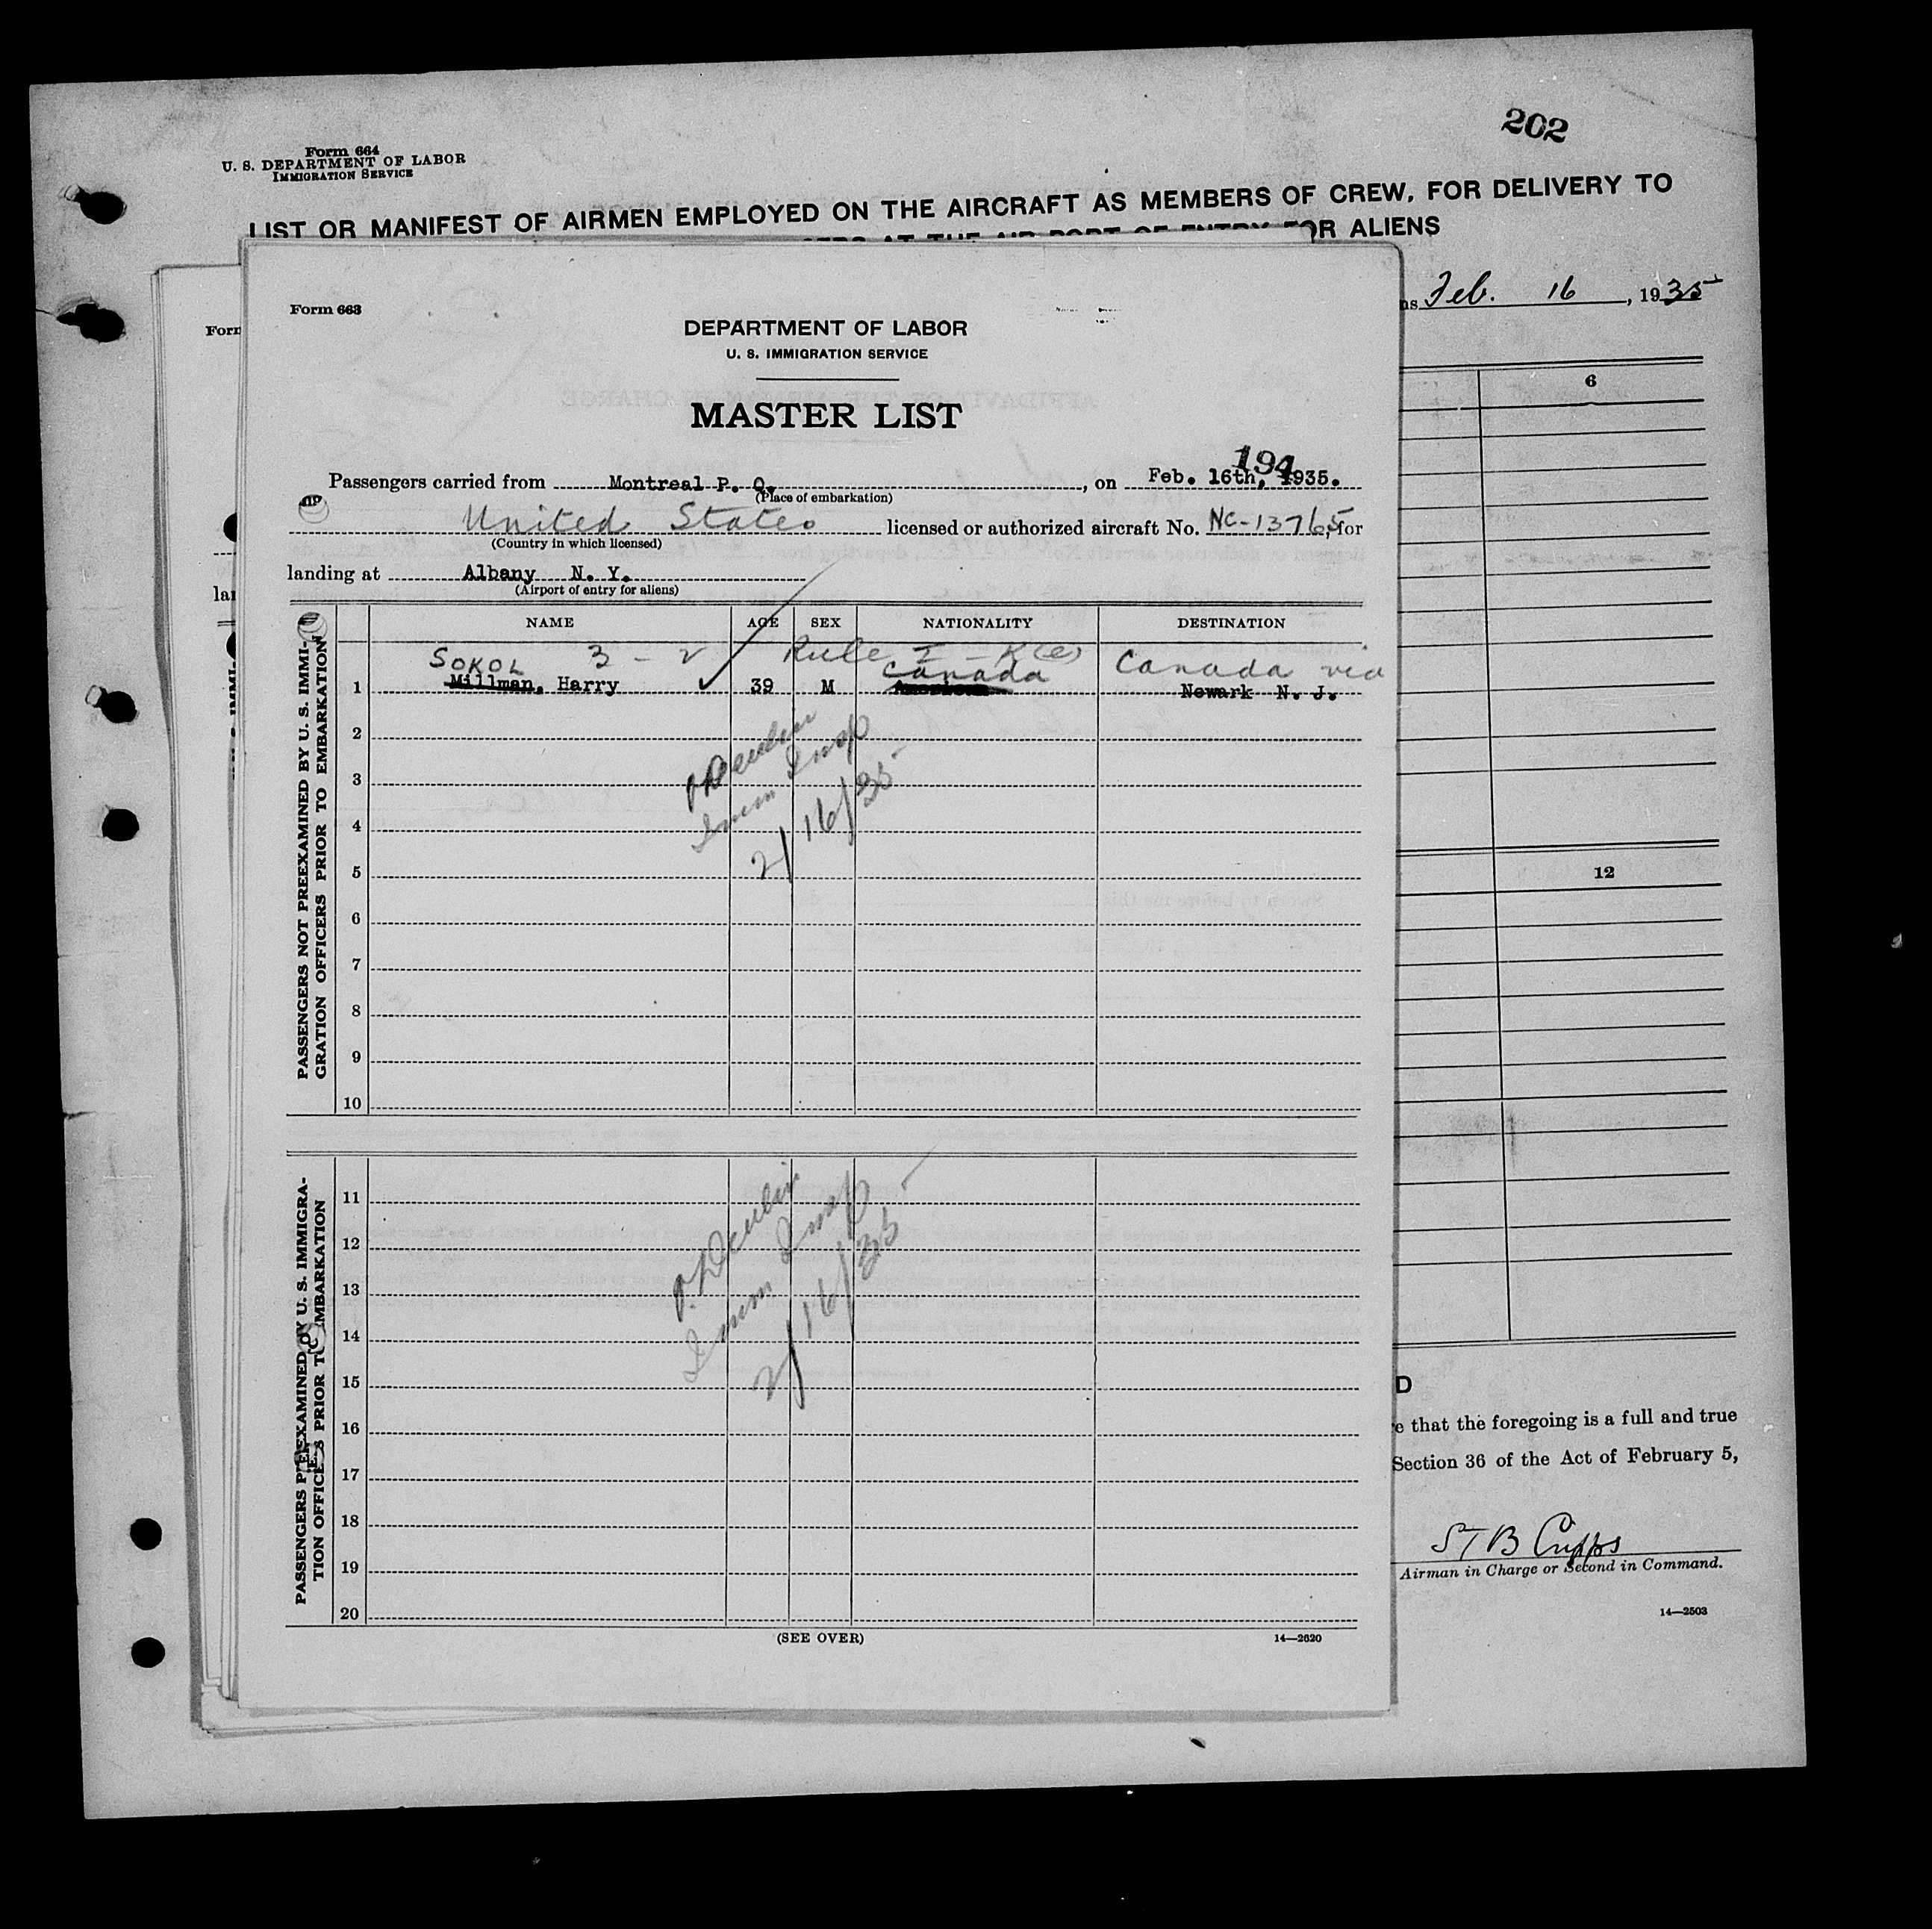 202
Form 664
U. S. DEPARTMENT OF LABOR
IMMIGRATION SERVICE
LIST OR MANIFEST OF AIRMEN EMPLOYED ON THE AIRCRAFT AS MEMBERS OF CREW, FOR DELIVERY TO
AT THE AIR PORT OF ENTRY FOR ALIENS
Feb. 16, 1935
6
12
D
that the foregoing is a full and true
Section 36 of the Act of February 5,
STB Cripps
Airman in Charge or Second in Command.
14—2503
Form 663
DEPARTMENT OF LABOR
U. S. IMMIGRATION SERVICE
MASTER LIST
194
Passengers carried from Montreal P. Q., on Feb. 16th, 1935.
(Place of embarkation)
United States licensed or authorized aircraft No. NC-13765, for
(Country in which licensed)
landing at Albany N. Y.
(Airport of entry for aliens)
NAME AGE SEX NATIONALITY DESTINATION
SOKOL 3 - 2 Rule I - K(e) Canada Canada via
1 Millman, Harry 39 M Newark N. J.
2
3
4
5
6
7
8
9
10
Imm Insp
2/16/35
PASSENGERS NOT PREEXAMINED BY U. S. IMMI-
GRATION OFFICERS PRIOR TO EMBARKATION
11
12
13
14
15
16
17
18
19
20
Imm Insp
2/16/35
PASSENGERS PREEXAMINED BY U. S. IMMIGRA-
TION OFFICERS PRIOR TO EMBARKATION
(SEE OVER) 14—2620